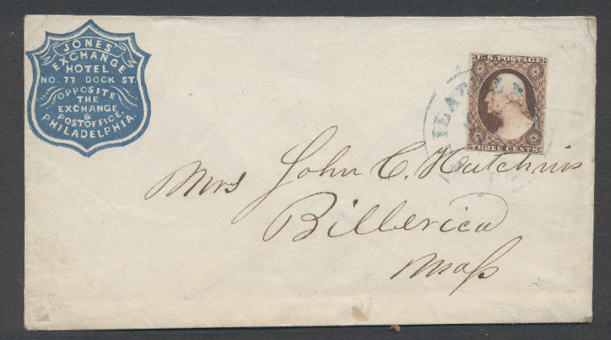 JONES'
EXCHANGE
HOTEL
NO. 77 DOCK ST.
OPPOSITE
THE
EXCHANGE
&
POSTOFFICE,
PHILADELPHIA.
U.S. POSTAGE
THREE CENTS
Mrs John C. Hutchins
Billerica
Maſs